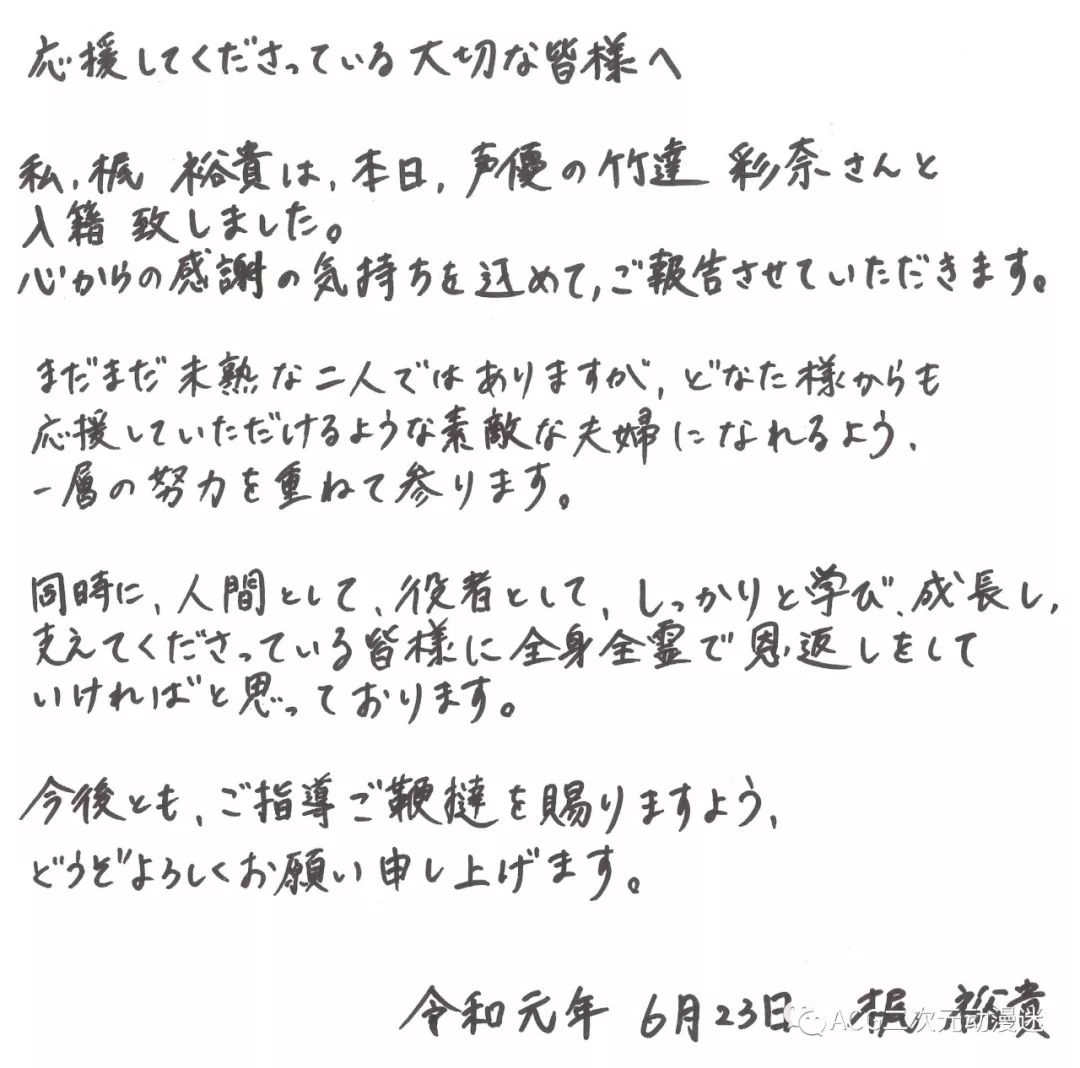 応援してくださっている大切な皆様へ
私、梶 裕貴は、本日、声優の竹達 彩奈さんと
入籍 致しました。
心からの感謝の気持ちを込めて、ご報告させていただきます。
まだまだ未熟な二人ではありますが、どなた様からも
応援していただけるような素敵な夫婦になれるよう、
一層の努力を重ねて参ります。
同時に、人間として、役者として、しっかりと学び、成長し、
支えてくださっている皆様に全身全霊で恩返しをして
いければと思っております。
今後とも、ご指導ご鞭撻を賜りますよう、
どうぞよろしくお願い申し上げます。
令和元年 6月23日 梶 裕貴
ACG二次元动漫迷